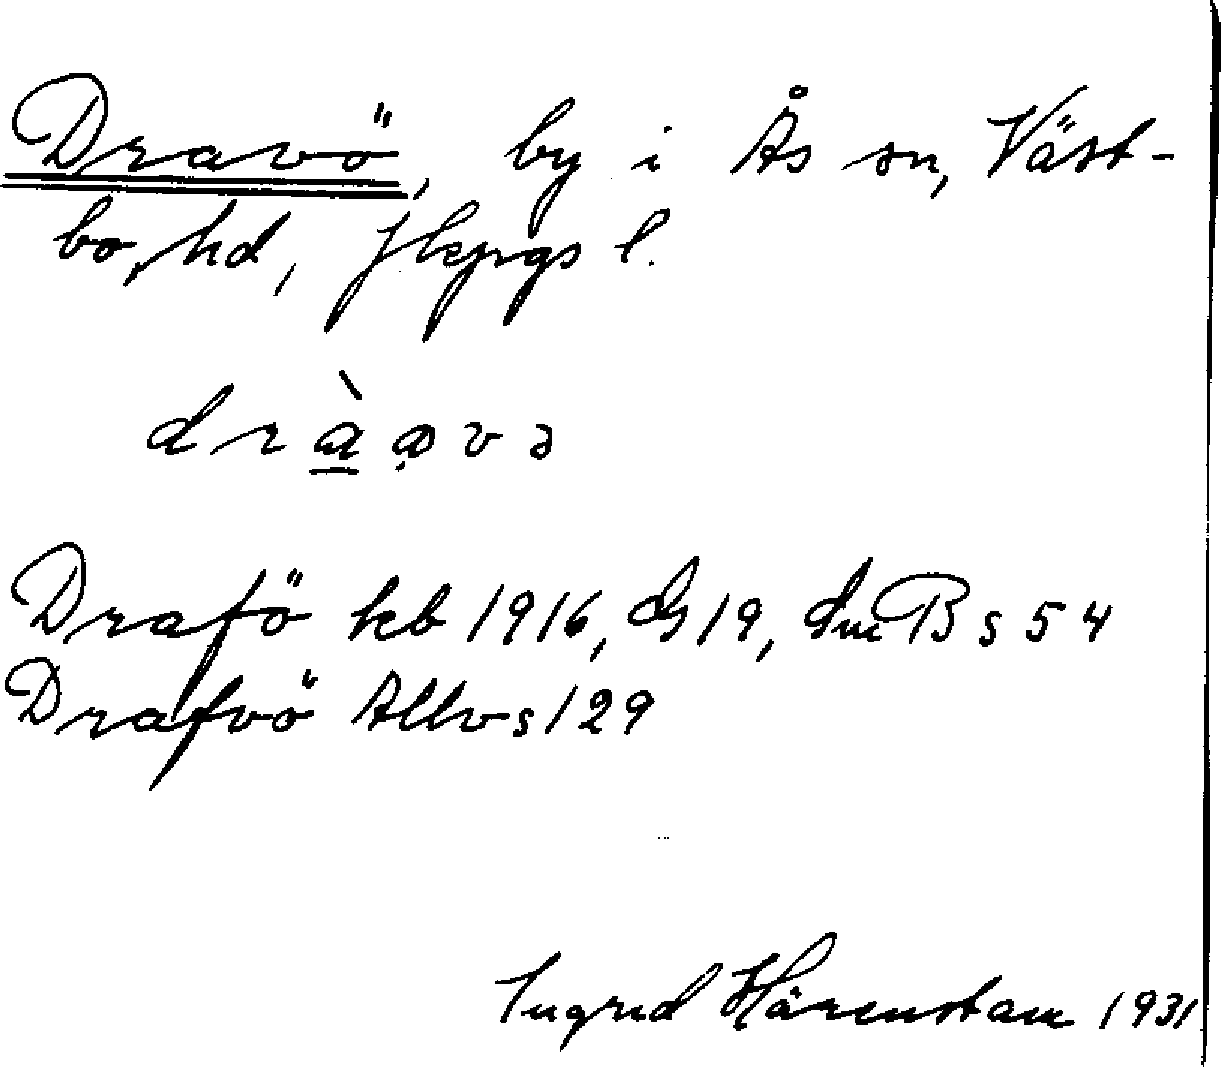 Dravö, by i Ås sn, Väst-
bo, hd, Jkpgs l.
dràavə
Drafö kb 1916, GS 19, B s 54
Drafvö Allvs 129
Ingrid Härenstam 1931